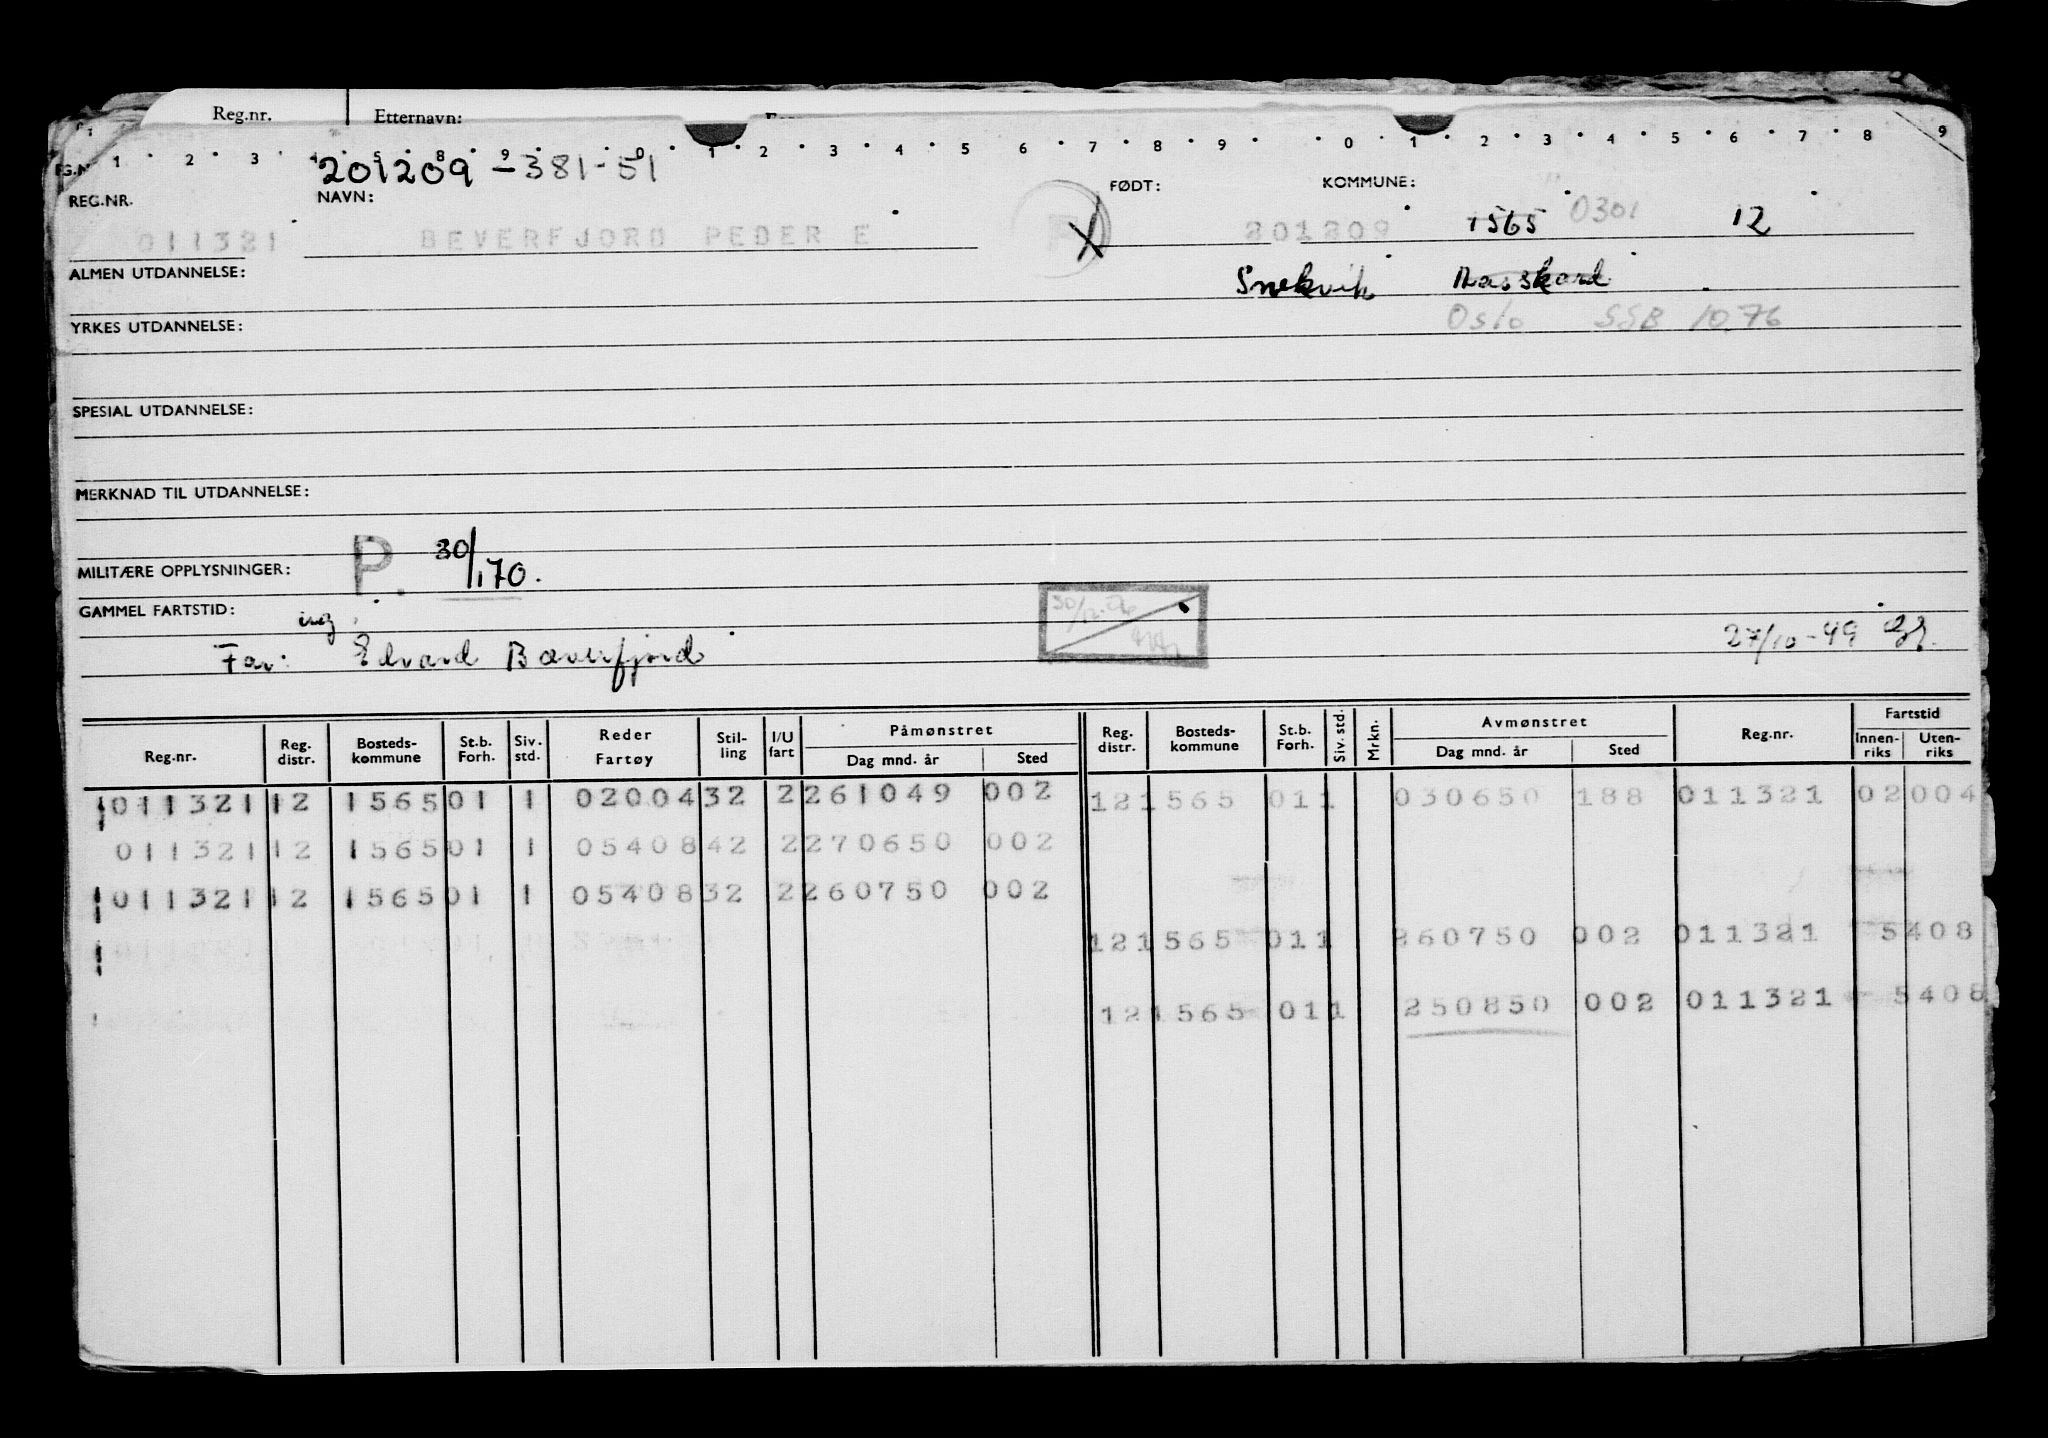 Reg.nr. Etternavn:
1 2 3 4 5 8 9 0 1 2 3 4 5 6 7 8 9 0 1 2 3 4 5 6 7 8 9
201209-381-51
REG.NR. NAVN: FØDT: KOMMUNE:
011321 BEVERFJORD PEDER E 201209 1565 0301 12
ALMEN UTDANNELSE: Snekvik
YRKES UTDANNELSE: Oslo SSB 10.76
SPESIAL UTDANNELSE:
MERKNAD TIL UTDANNELSE:
MILITÆRE OPPLYSNINGER: P. 30/1 70.
GAMMEL FARTSTID:
Far: Edvard Bæverfjord 27/10-49
Reg.nr. Reg. distr. Bosteds-kommune St.b. Forh. Siv. std. Reder Fartøy Stil-ling I/U fart Påmønstret Dag mnd. år Sted Reg. distr. Bosteds-kommune St.b. Forh. Siv. std. Mrkn. Avmønstret Dag mnd. år Sted Reg.nr. Fartstid Innen-riks Uten-riks
011321 12 1565 01 1 02004 32 2 261049 002 12 1565 01 1 030650 188 011321 02004
011321 12 1565 01 1 05408 42 2 270650 002
011321 12 1565 01 1 05408 32 2 260750 002
12 1565 01 1 260750 002 011321 5408
12 1565 01 1 250850 002 011321 5408